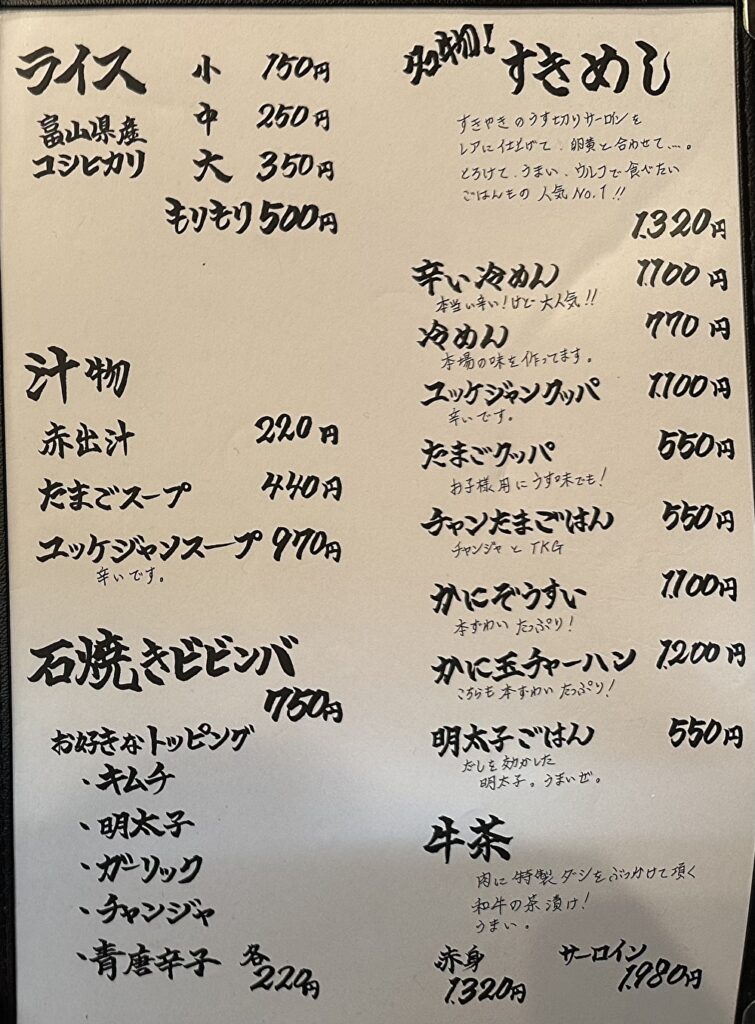 ライス 小 150円
富山県産 中 250円
コシヒカリ 大 350円
もりもり 500円
汁物
赤出汁 220円
たまごスープ 440円
ユッケジャンスープ 970円
辛いです。
石焼きビビンバ
750円
お好きなトッピング
・キムチ
・明太子
・ガーリック
・チャンジャ
・青唐辛子 各220円
名物!すきめし
すきやきのうす切りサーロインを
レアに仕上げて、卵黄と合わせて…。
とろけて、うまい、ウルフで食べたい
ごはんもの 人気No.1!!
1.320円
辛い冷めん 1.100円
本当に辛い!けど大人気!!
冷めん 770円
本場の味を作ってます。
ユッケジャンクッパ 1.100円
辛いです。
たまごクッパ 550円
お子様用にうす味でも!
チャンたまごはん 550円
チャンジャとTKG
かにぞうすい 1.100円
本ずわい たっぷり!
かに玉チャーハン 1.200円
こちらも本ずわい たっぷり!
明太子ごはん 550円
だしを効かした
明太子。うまいぜ。
牛茶
肉に特製ダシをぶっかけて頂く
和牛の茶漬け!
うまい。
赤身 サーロイン
1.320円 1.980円